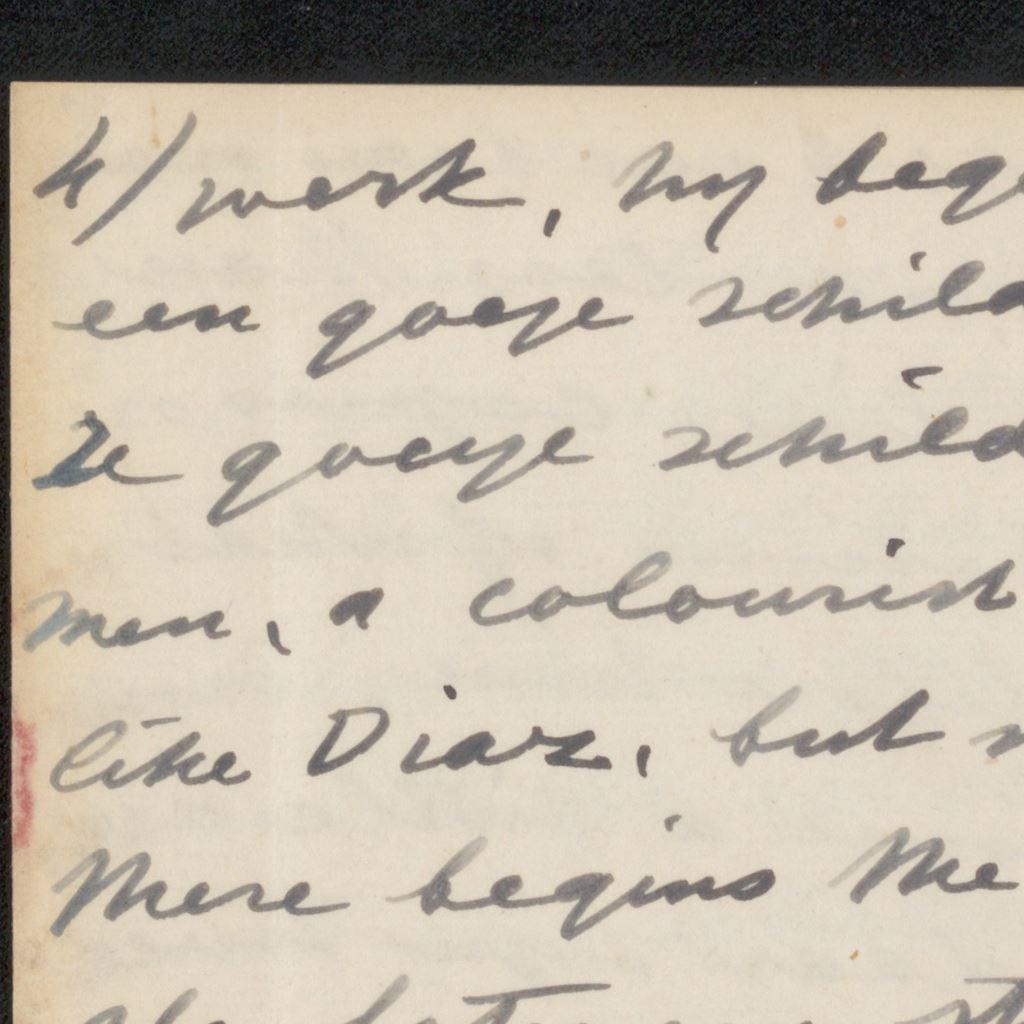 4/ werk, hy bege
een goeye schild
ze goeye schild
men, a colourist
like Diaz, but
there begins the